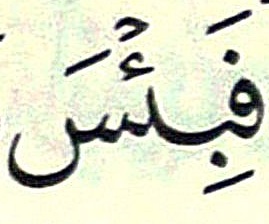 فَبِئْسَ